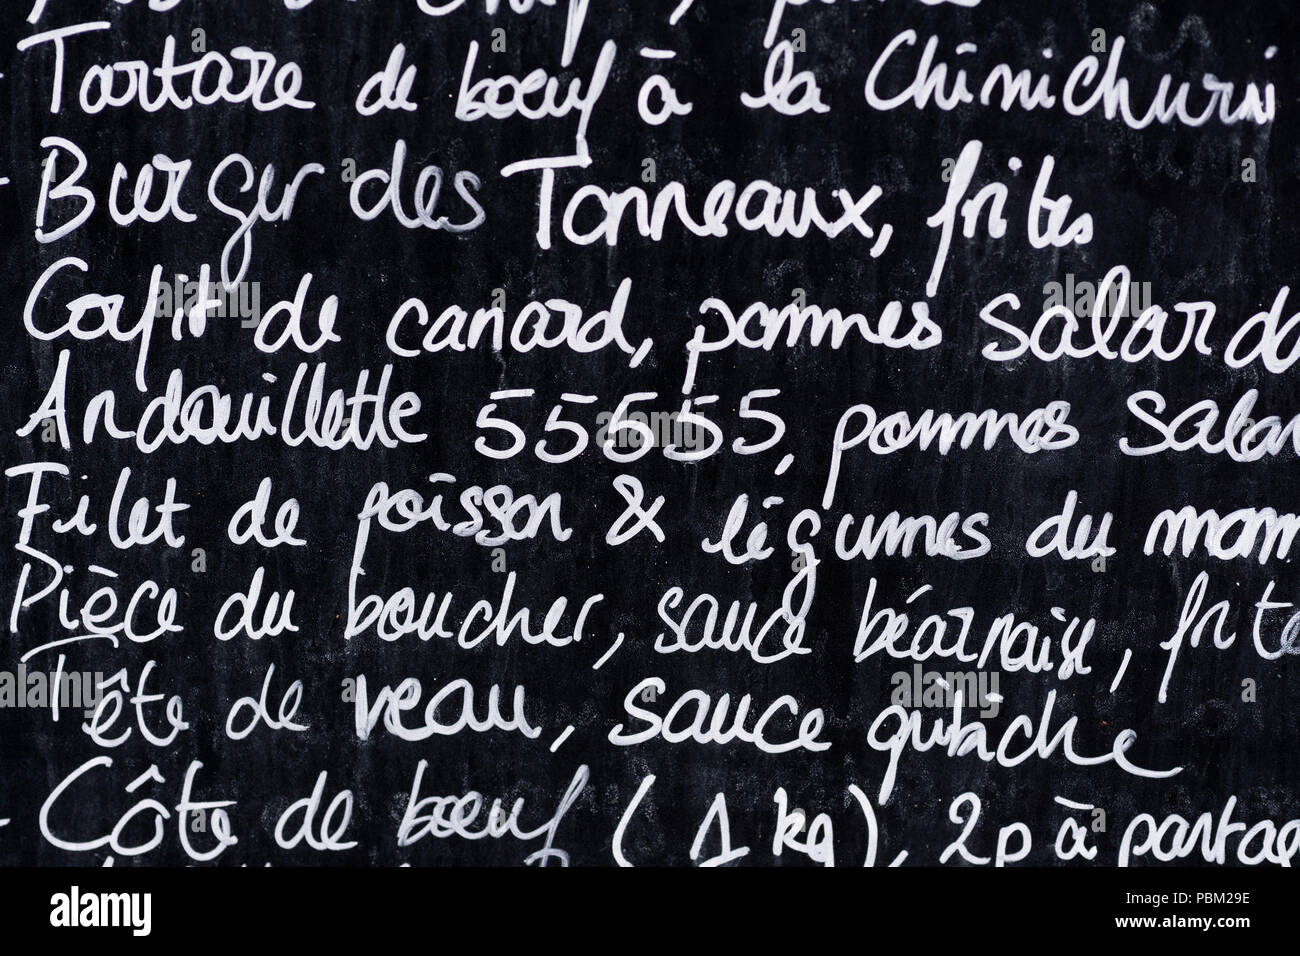 Tartare de bœuf à la Chimichurri
Burger des Tonneaux, frites
Confit de canard, pommes Salarda
Andouillette 55555, pommes Salar
Filet de poisson & légumes du mom
Pièce du boucher, sauce béarnaise, frite
Tête de veau, sauce gribiche
Côte de bœuf (1 kg), 2p à partag
alamy
Image ID: PBM29E
www.alamy.com